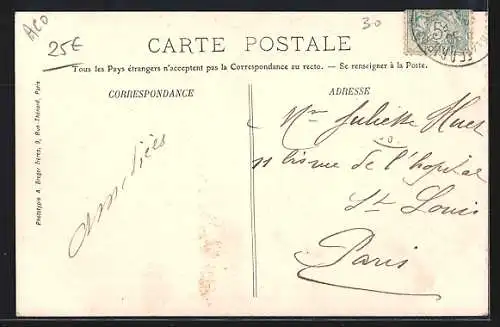 ACO
25€
30
CARTE POSTALE
Tous les Pays étrangers n'acceptent pas la Correspondance au recto. — Se renseigner à la Poste.
CORRESPONDANCE
ADRESSE
Phototypie A. Breger frères, 9, Rue Thénard, Paris
Amitiés
Juliette Huet
11 bis rue de l'hopital
St Louis
Paris